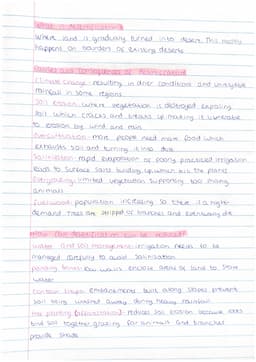 What is desertification?
Where land is gradually turned into desert. This mostly
happens on borders of existing deserts
Causes and consequences of desertification
Climate change: resulting in drier conditions and unreliable
rainfall in some regions.
Soil erosion: where vegetation is destroyed exposing
soil which cracks and breaks up making it vulnerable
to erosion by wind and rain
Overcultivation: more people need more food which
exhausts soil and turning it into dust
Salinisation: rapid evaporation of poorly practised irrigation
leads to surface salts building up which kills the plants
Overgrazing: limited vegetation supporting too many
animals
Fuelwood: population increasing so there is a high
demand. Trees are stripped of branches and eventually die
How can desertification be reduced?
Water and soil management: irrigation needs to be
managed carefully to avoid salinisation
low walls enclose areas of land to store
water
Contour bunds: embankments built along slopes prevent
soil being washed away during heavy rainfall
Tree planting (afforestation): reduces soil erosion because roots
bind soil together, grazing for animals and branches
provide shade